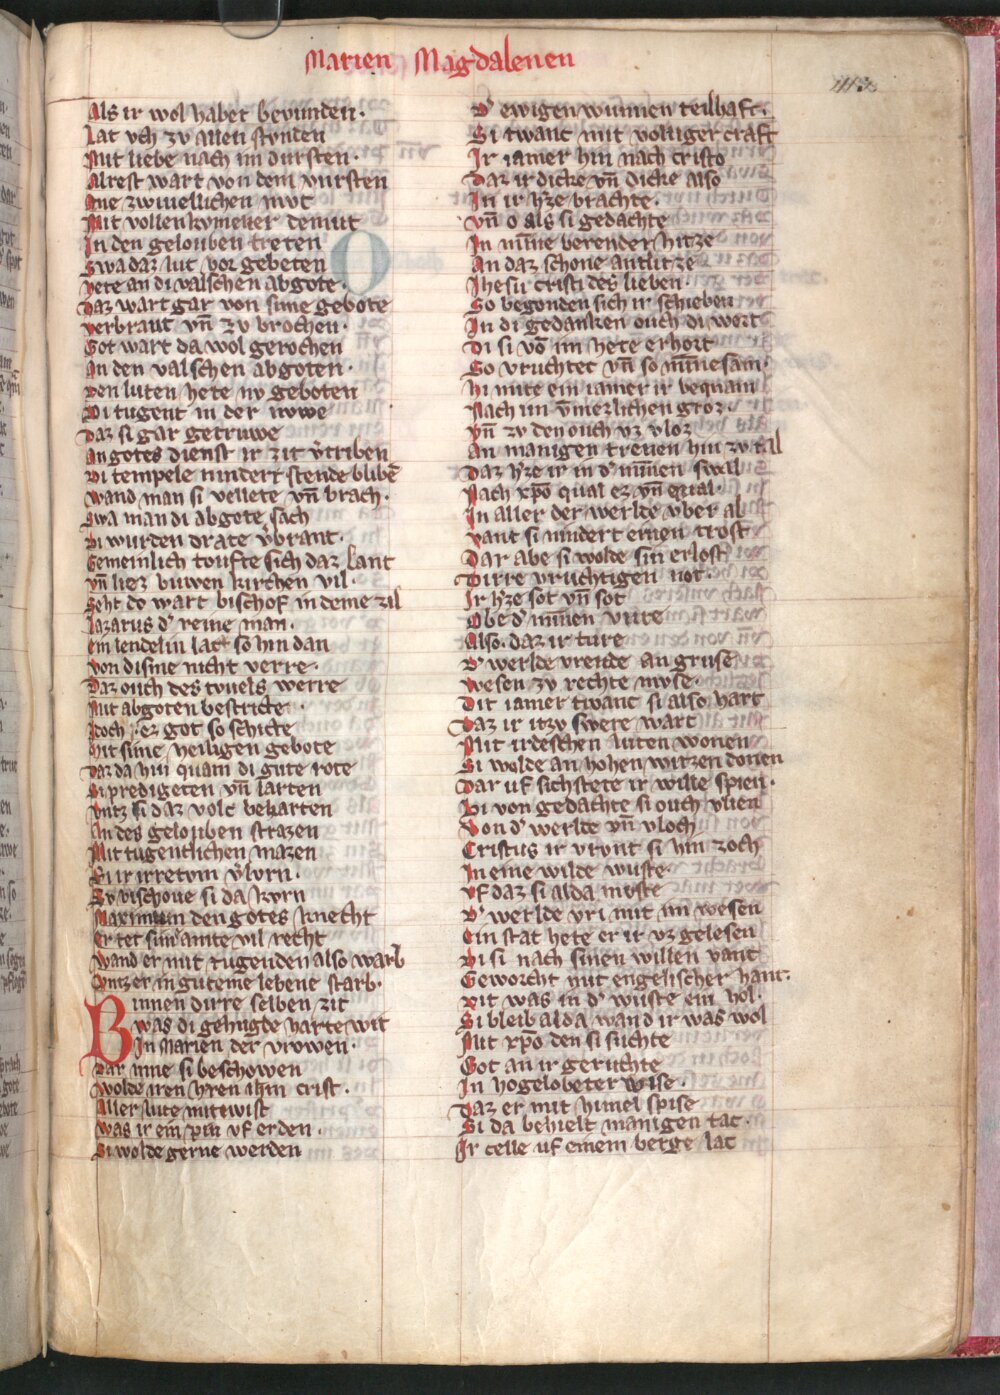 Marien Magdalenen
113
Als ir wol habet bevunden.
Lat vch zv allen stvnden
Mit liebe nach im dursten.
Alrest wart von dem vursten
Ane zwiuellichen mvt
Mit vollenkvmener demut
In den gelouben treten
Swa daz lut vor gebeten
Hete an di valschen abgote.
Daz wart gar von sime gebote
Verbrant vn̄ zv brochen.
Got wart da wol gerochen
An den valschen abgoten.
Den luten hete nv geboten
Di tugent in der nvwe
Daz si gar getruwe
An gotes dienst ir zit v̓triben
Di tempele nindert stende blibē
Wand man si vellete vn̄ brach.
Swa man di abgote sach
Di wurden drate v̓brant.
Gemeinlich toufte sich daz lant
Vn̄ liez buwen kirchen vil.
Seht do wart bischof in deme zil
Lazarus d̓ reine man.
Ein lendelin lac so hin dan
Von disme nicht verre.
Daz ouch des tvuels werre
Mit abgoten bestricte.
Idoch ez got so schicte
Mit sime heiligen gebote
Daz da hin quam di gute rote
Si predigeten vn̄ larten
Vntz si daz volc bekarten
An des gelouben strazen
Mit tugentlichen mazen
Di ir irretvm v̓lvrn.
Zv bischoue si da kvrn
Maximin den gotes knecht
Er tet sim̄ amte vil recht
Wand er mit tugenden also warb
Vntz er in guteme lebene starb.
Binnen dirre selben zit
Was di gehugde harte wit
In Marien der vrowen.
Dar inne si beschowen
Wolde iren h̓ren ih̄m crist.
Aller lute mitewist
Was ir ein pin vf erden.
Si wolde gerne werden
D̓ ewigen wunnen teilhaft.
Si twanc mit volliger craft
Ir iamer hin nach cristo
Daz ir dicke vn̄ dicke also
In ir h̓ze brachte.
Vn̄ o als si gedachte
In minne berender hitze
An daz schone antlitze
Jhesu cristi des lieben
So begonden sich ir schieben
In di gedanken ouch di wort
Di si vō im hete erhort
So vruchtec vn̄ so minnesam.
Hi mite ein iamer ir bequam
Nach im v̄mezlichen groz.
Vn̄ zv den ouch vz vloz
An manigen trenen hin zv tal
Daz h̓ze ir in d̓ minnen swal
Nach xp̄o qual ez vn̄ qual.
In aller der werlde vber al
Vant si nindert einen trost
Dar abe si wolde sin erlost
Dirre vruchtigen not.
Ir h̓ze sot vn̄ sot
Obe d̓ minnen vure
Also. daz ir ture
D̓ werlde vreude an gruse
Wesen zv rechte mvse.
Dit iamer twanc si also hart
Daz ir itzv swere wart
Mit irdeschen luten wonen
Si wolde an hohen witzen donen
Dar vf sich stete ir wille spien.
Hi von gedachte si ouch vlien
Von d̓ werlde vn̄ vloch
Cristus ir vrunt si hin zoch
In eine wilde wuste.
Vf daz si alda mvste
D̓ werlde vri mit im wesen
Ein stat hete er ir vz gelesen
Di si nach sinen willen vant
Geworcht mit engelischer hant.
Dit was in d̓ wuste ein hol.
Si bleib alda wand ir was wol
Mit xp̄o den si suchte
Got an ir geruchte
In hogelobeter wise.
Daz er mit himel spise
Si da behielt manigen tac.
Ir celle uf einem berge lac